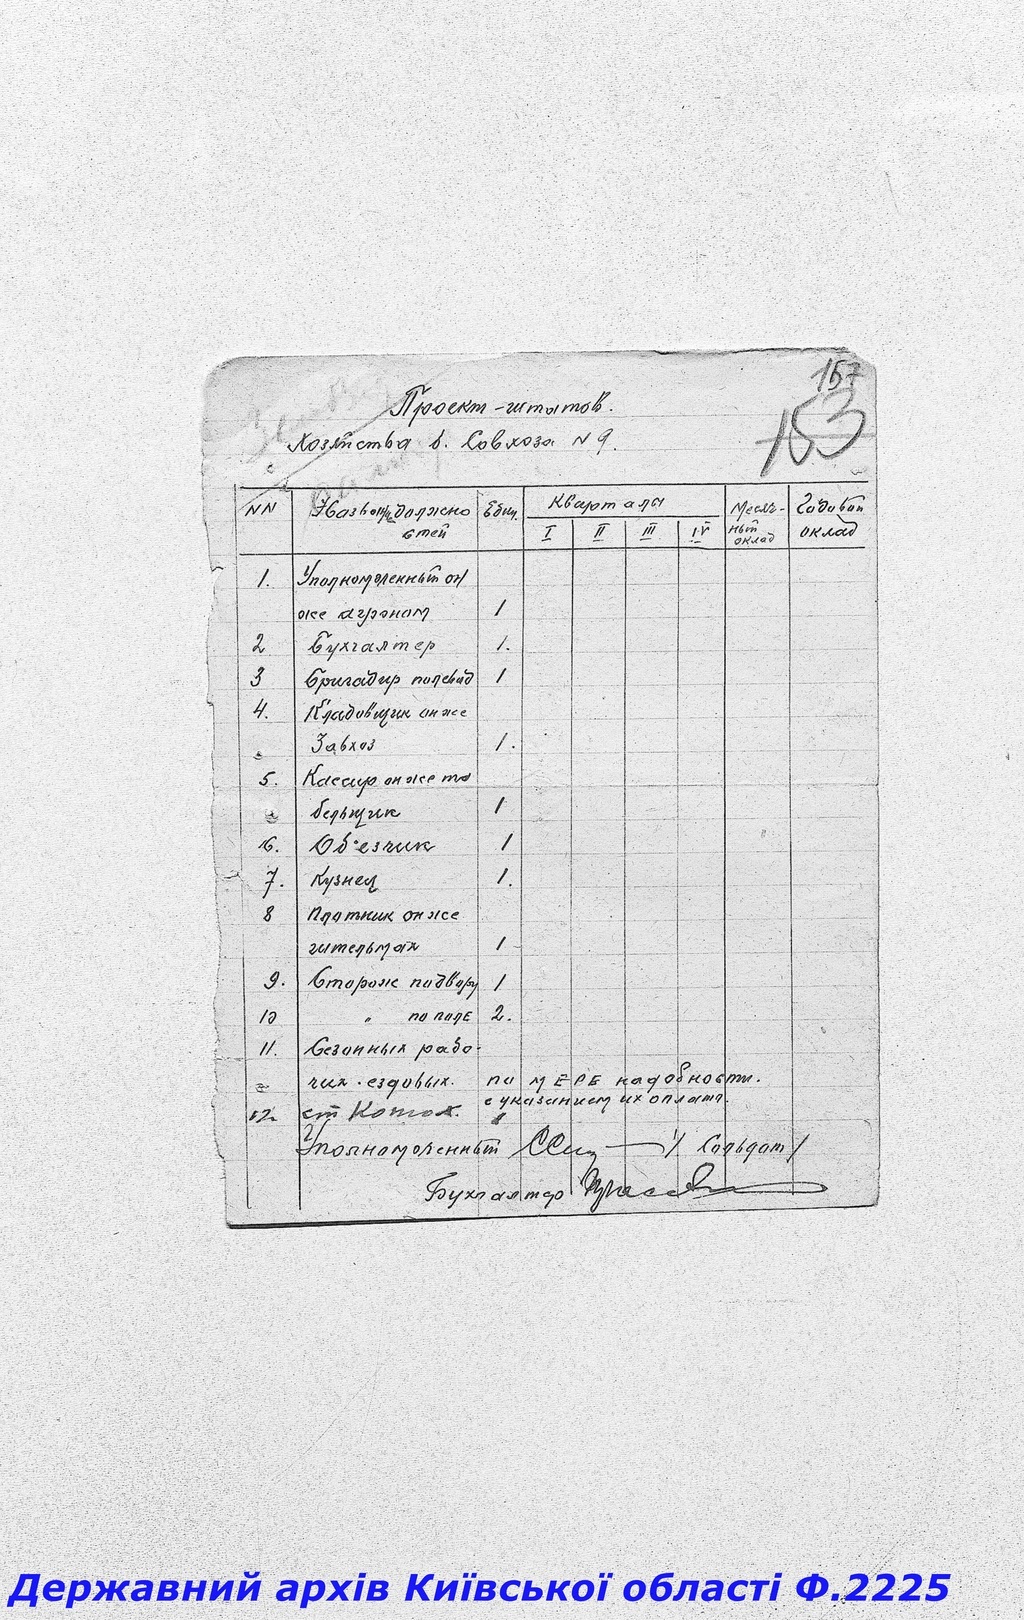 157
153
Проект-штатов.
Хозяйства б. Совхоза N 9.
NN Назван/ие должно Един. Кварталы Месяч- Годовой
стей I II III IV ный оклад
оклад
1. Уполномоченный он
же агроном 1
2 Бухгалтер 1.
3 Бригадир полевод 1
4. Кладовщик он же
Завхоз 1.
5. Кассир он же та
бельщик 1
6. Об'езчик 1
7. Кузнец 1.
8 Плотник он же
штельмах 1
9. Сторож по двору 1
10 " по поле 2.
11. Сезонных рабо-
чих ездовых. по МЕРЕ надобности.
с указанием их оплаты.
12. ст
Уполномоченный / Сольдат /
Бухгалтер
Державний архів Київської області Ф.2225